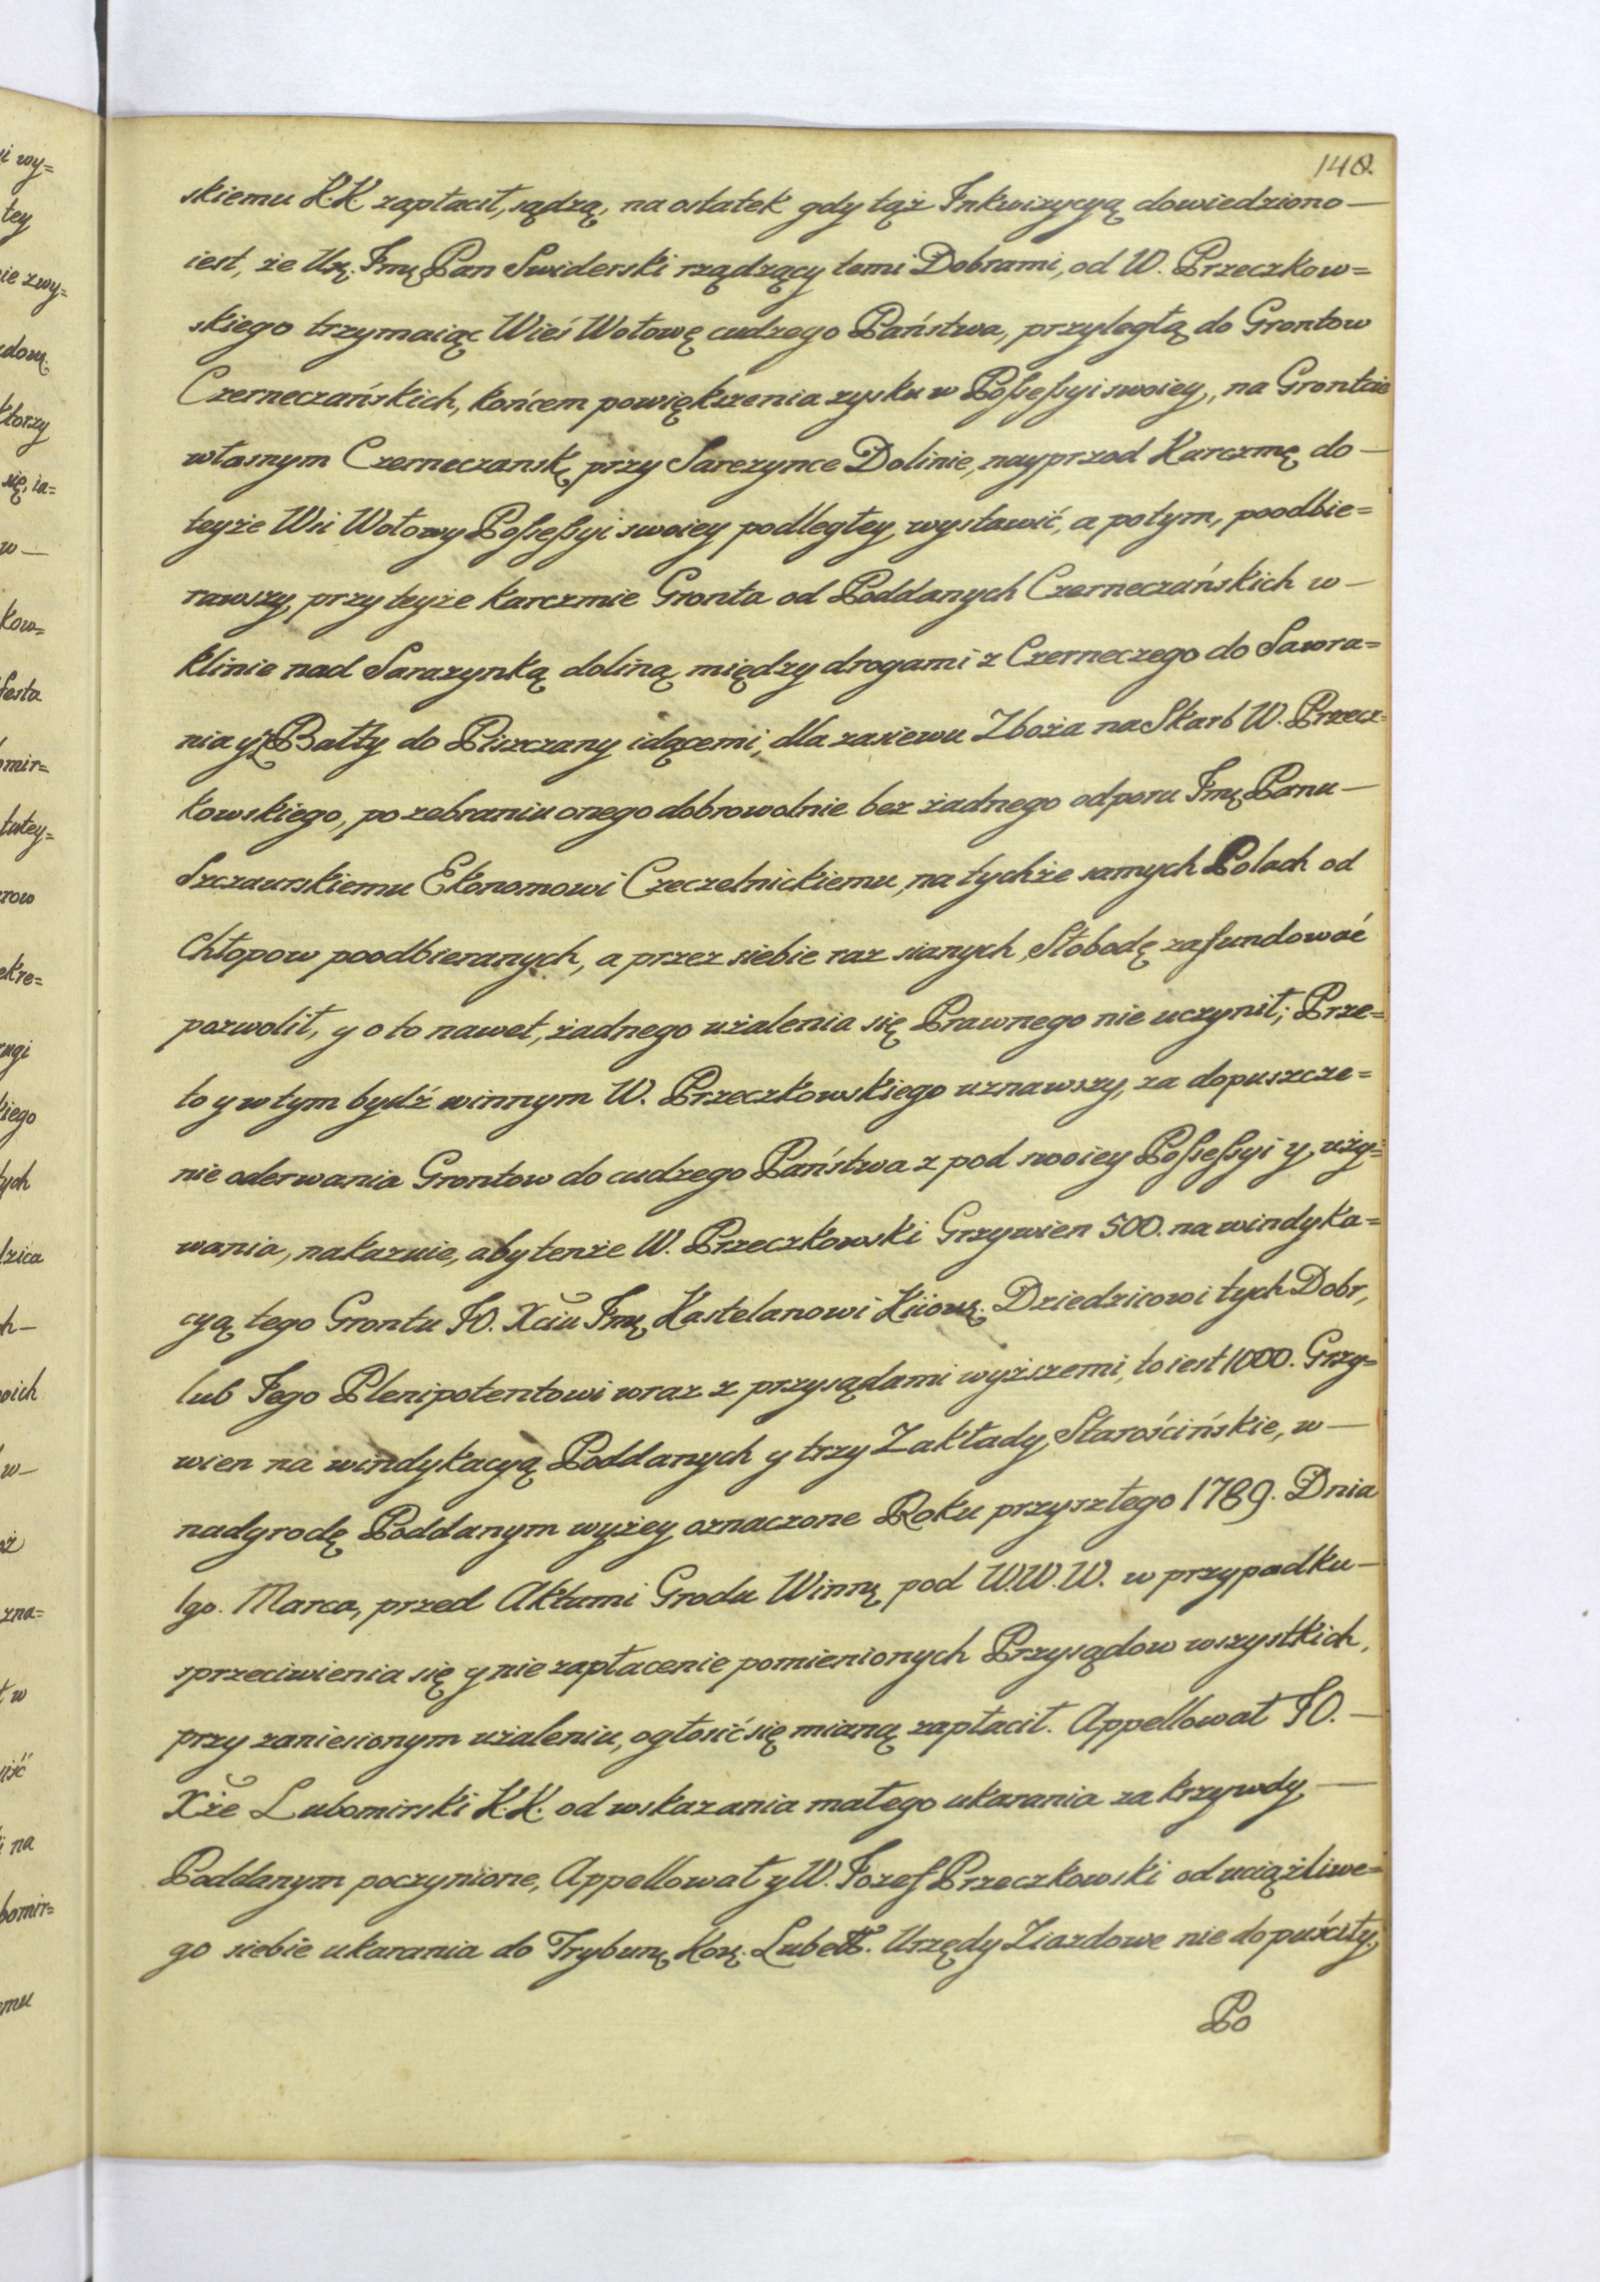 140.
skiemu K.K zapłacił, sądzą, na ostatek gdy tąż Inkwizycyą dowiedziono —
iest, że Urę. Jmę Pan Swiderski rządzący temi Dobrami, od W. Przeczkow=
skiego trzymaiąc Wieś Wołowę cudzego Państwa, przyległą do Grontow
Czerneczańskich, końcem powiększenia zysku w Possessyi swoiey, na Gronłcie
własnym Czerneczanskę przy Sarezynce Dolinie, nayprzod Karczmę do —
teyże Wsi Wołowy Possessyi swoiey podległey wystawić, a potym, poodbie=
rawszy przy teyże karczmie Gronta od Poddanych Czerneczańskich w —
klinie nad Sarazynką doliną między drogami z Czerneczego do Sawra=
nia y z Bałty do Piszczany idącemi, dla zasiewu Zboża na Skarb W. Przecz=
kowskiego, po zebraniu onego dobrowolnie bez żadnego odporu Jmę Panu —
Szczaurskiemu Ekonomowi Czeczelnickiemu, na tychże samych Polach od
Chłopow poodbieranych, a przez siebie raz sianych, Słobodę zafundować
pozwolił, y o to nawet, żadnego użalenia się Prawnego nie uczynił; Prze=
to y w tym bydź winnym W. Przeczkowskiego uznawszy, za dopuszcze=
nie oderwania Grontow do cudzego Państwa z pod swoiey Possessyi y uży=
wania, nakazuie, aby tenże W. Przeczkowski Grzywien 500. na windyka=
cyą tego Grontu JO. Xciu Jmę Kastelanowi Kiiowę. Dziedzicowi tych Dobr,
lub Jego Plenipotentowi wraz z przysądami wyższemi, to iest 1000. Grzy=
wien na windykacyą Poddanych y trzy Zakłady Starościńskie, w —
nadgrodę Poddanym wyżey oznaczone Roku przyszłego 1789. Dnia
1go. Marca, przed Aktami Grodu Winnę pod W.W.W. w przypadku —
sprzeciwienia się y nie zapłacenie pomienionych Przysądow wszystkich,
przy zaniesionym użaleniu, ogłosić się mianą zapłacił. Appellował JO. —
Xże Lubomirski K.K. od wskazania małego ukarania za krzywdy —
Poddanym poczynione, Appellował y W. Jozef Przeczkowski od uciążliwe=
go siebie ukarania do Trybunę Korę. Lubell. Urzędy Ziazdowe nie dopuściły.
Po